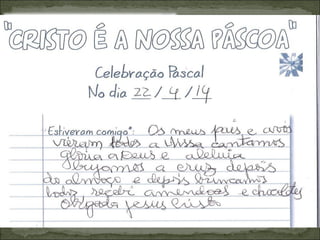 "CRISTO É A NOSSA PÁSCOA"
Celebração Pascal
No dia 22 / 4 / 14
Estiveram comigo: Os meus pais e avós
vieram todos a Missa cantamos
glória a Deus e aleluia
beijamos a cruz depois
do almoço e depois brincamos
todos recebi amendoas e chocolates
Obrigada Jesus Cristo